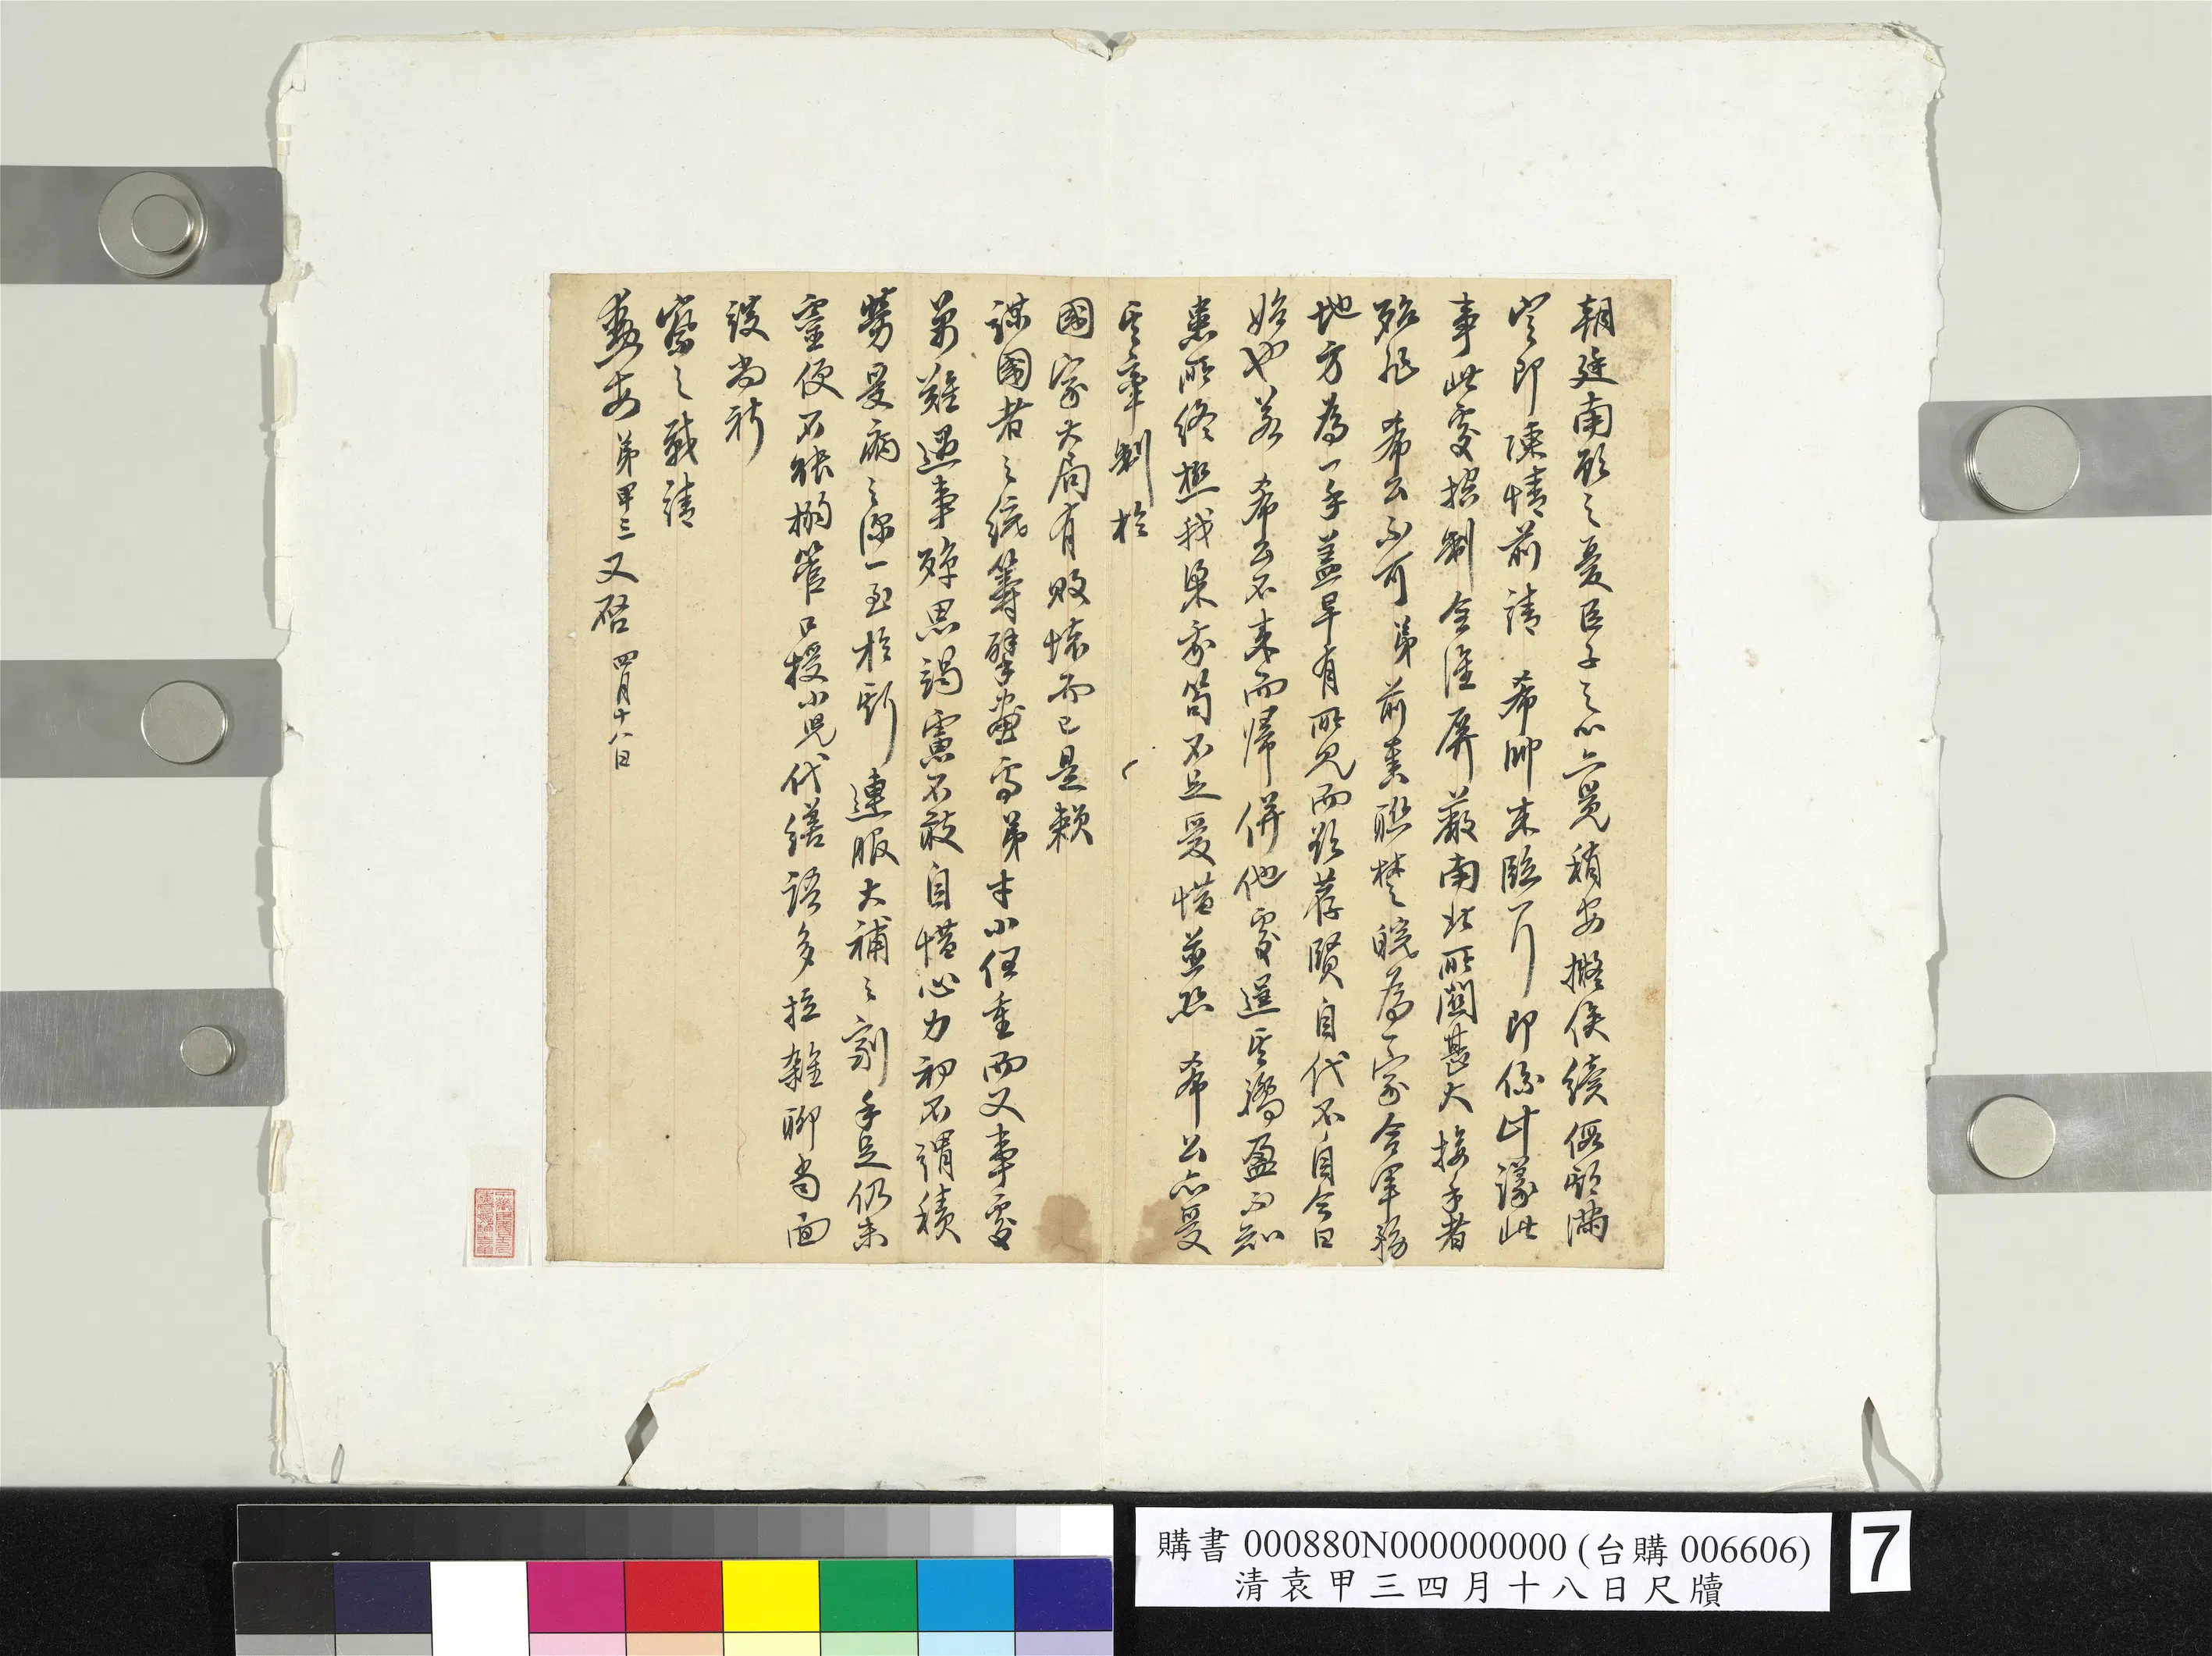 朝廷南顧之憂臣子之心亦覺稍安擬俟續假期滿
定即陳情前請 希帥來臨一行即係此議此
事此處控制全淮屏蔽南北所關甚大接手者
殆非 希公不可弟前奏聯楚皖為一家合軍務
地方為一手蓋早有所見而欲荐賢自代不自今日
始也若 希公不來而歸併他處遲其驕盈不知
患所終極我梁豪苟不足愛惜並恐 希公亦受
其牽制於
國家大局有敗壞而已是賴
謀國者之統籌擘畫焉弟才小任重而又事處
萬難遇事殫思竭慮不敢自惜心力初不謂積
勞受病之深一至於斯連服大補之劑手足仍未
靈便不能搦管口授小兒代繕語多拉雜聊當面
談尚祈
察之敬請
勳安 弟甲三又啓 四月十八日
購書 000880N000000000 (台購 006606)
清袁甲三四月十八日尺牘
7